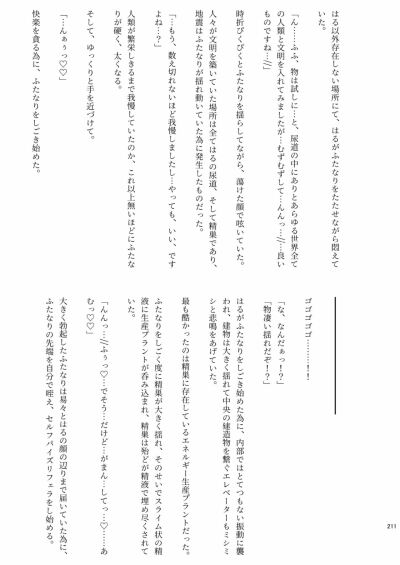 はる以外存在しない場所にて、はるがふたなりをたたせながら悶えて
いた。
「ん……ふふ、物は試しに…と、尿道の中にありとあらゆる世界全て
の人類と文明を入れてみましたが…むずむずして…んんっ…//…良い
ものですね…//」
時折びくびくとふたなりを揺らしてながら、蕩けた顔で呟いていた。
人々が文明を築いていた場所は全てはるの尿道、そして精巣であり、
地震はふたなりが揺れ動いていた為に発生したものだった。
「…もう、数え切れないほど我慢しましたし…やっても、いい、です
よね…?」
人類が繁栄しきるまで我慢していたのか、これ以上無いほどにふたな
りが硬く、太くなる。
そして、ゆっくりと手を近づけて。
「…んぁぅっ♡♡」
快楽を貪る為に、ふたなりをしごき始めた。
ゴゴゴゴゴ………!!
「な、なんだぁっ!?」
「物凄い揺れだぞ!?」
はるがふたなりをしごき始めた為に、内部ではとてつもない振動に襲
われ、建物は大きく揺れて中央の建造物を繋ぐエレベーターもミシミ
シと悲鳴をあげていた。
最も酷かったのは精巣に存在しているエネルギー生産プラントだった。
ふたなりをしごく度に精巣が大きく揺れ、そのせいでスライム状の精
液に生産プラントが呑み込まれ、精巣は殆どが精液で埋め尽くされて
いた。
「んんっ…//ふぅっ♡…でそう…だけど…がまん…してっ…♡……あ
むっ♡♡」
大きく勃起したふたなりは易々とはるの顔の辺りまで届いていた為に、
ふたなりの先端を自分で咥え、セルフパイズリフェラをし始める。
211